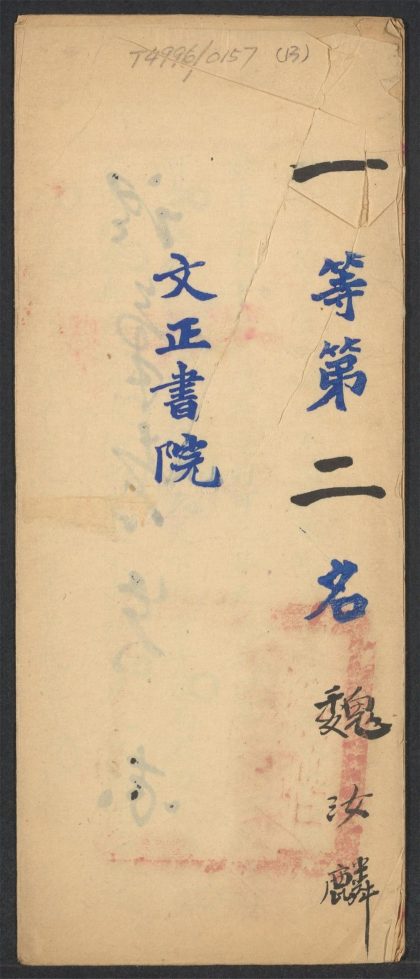 T4996/0157 (13)
一等第二名 魏汝麟
文正書院